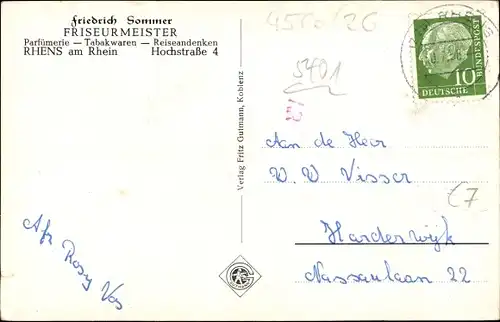 Friedrich Sommer
FRISEURMEISTER
Parfümerie — Tabakwaren — Reiseandenken
RHENS am Rhein Hochstraße 4
Verlag Fritz Gutmann, Koblenz
5401
10
DEUTSCHE
BUNDESPOST
Aan de Heer
W. W Visser
Harderwijk
Nassaulaan 22
€7
Afz Rosy Vos